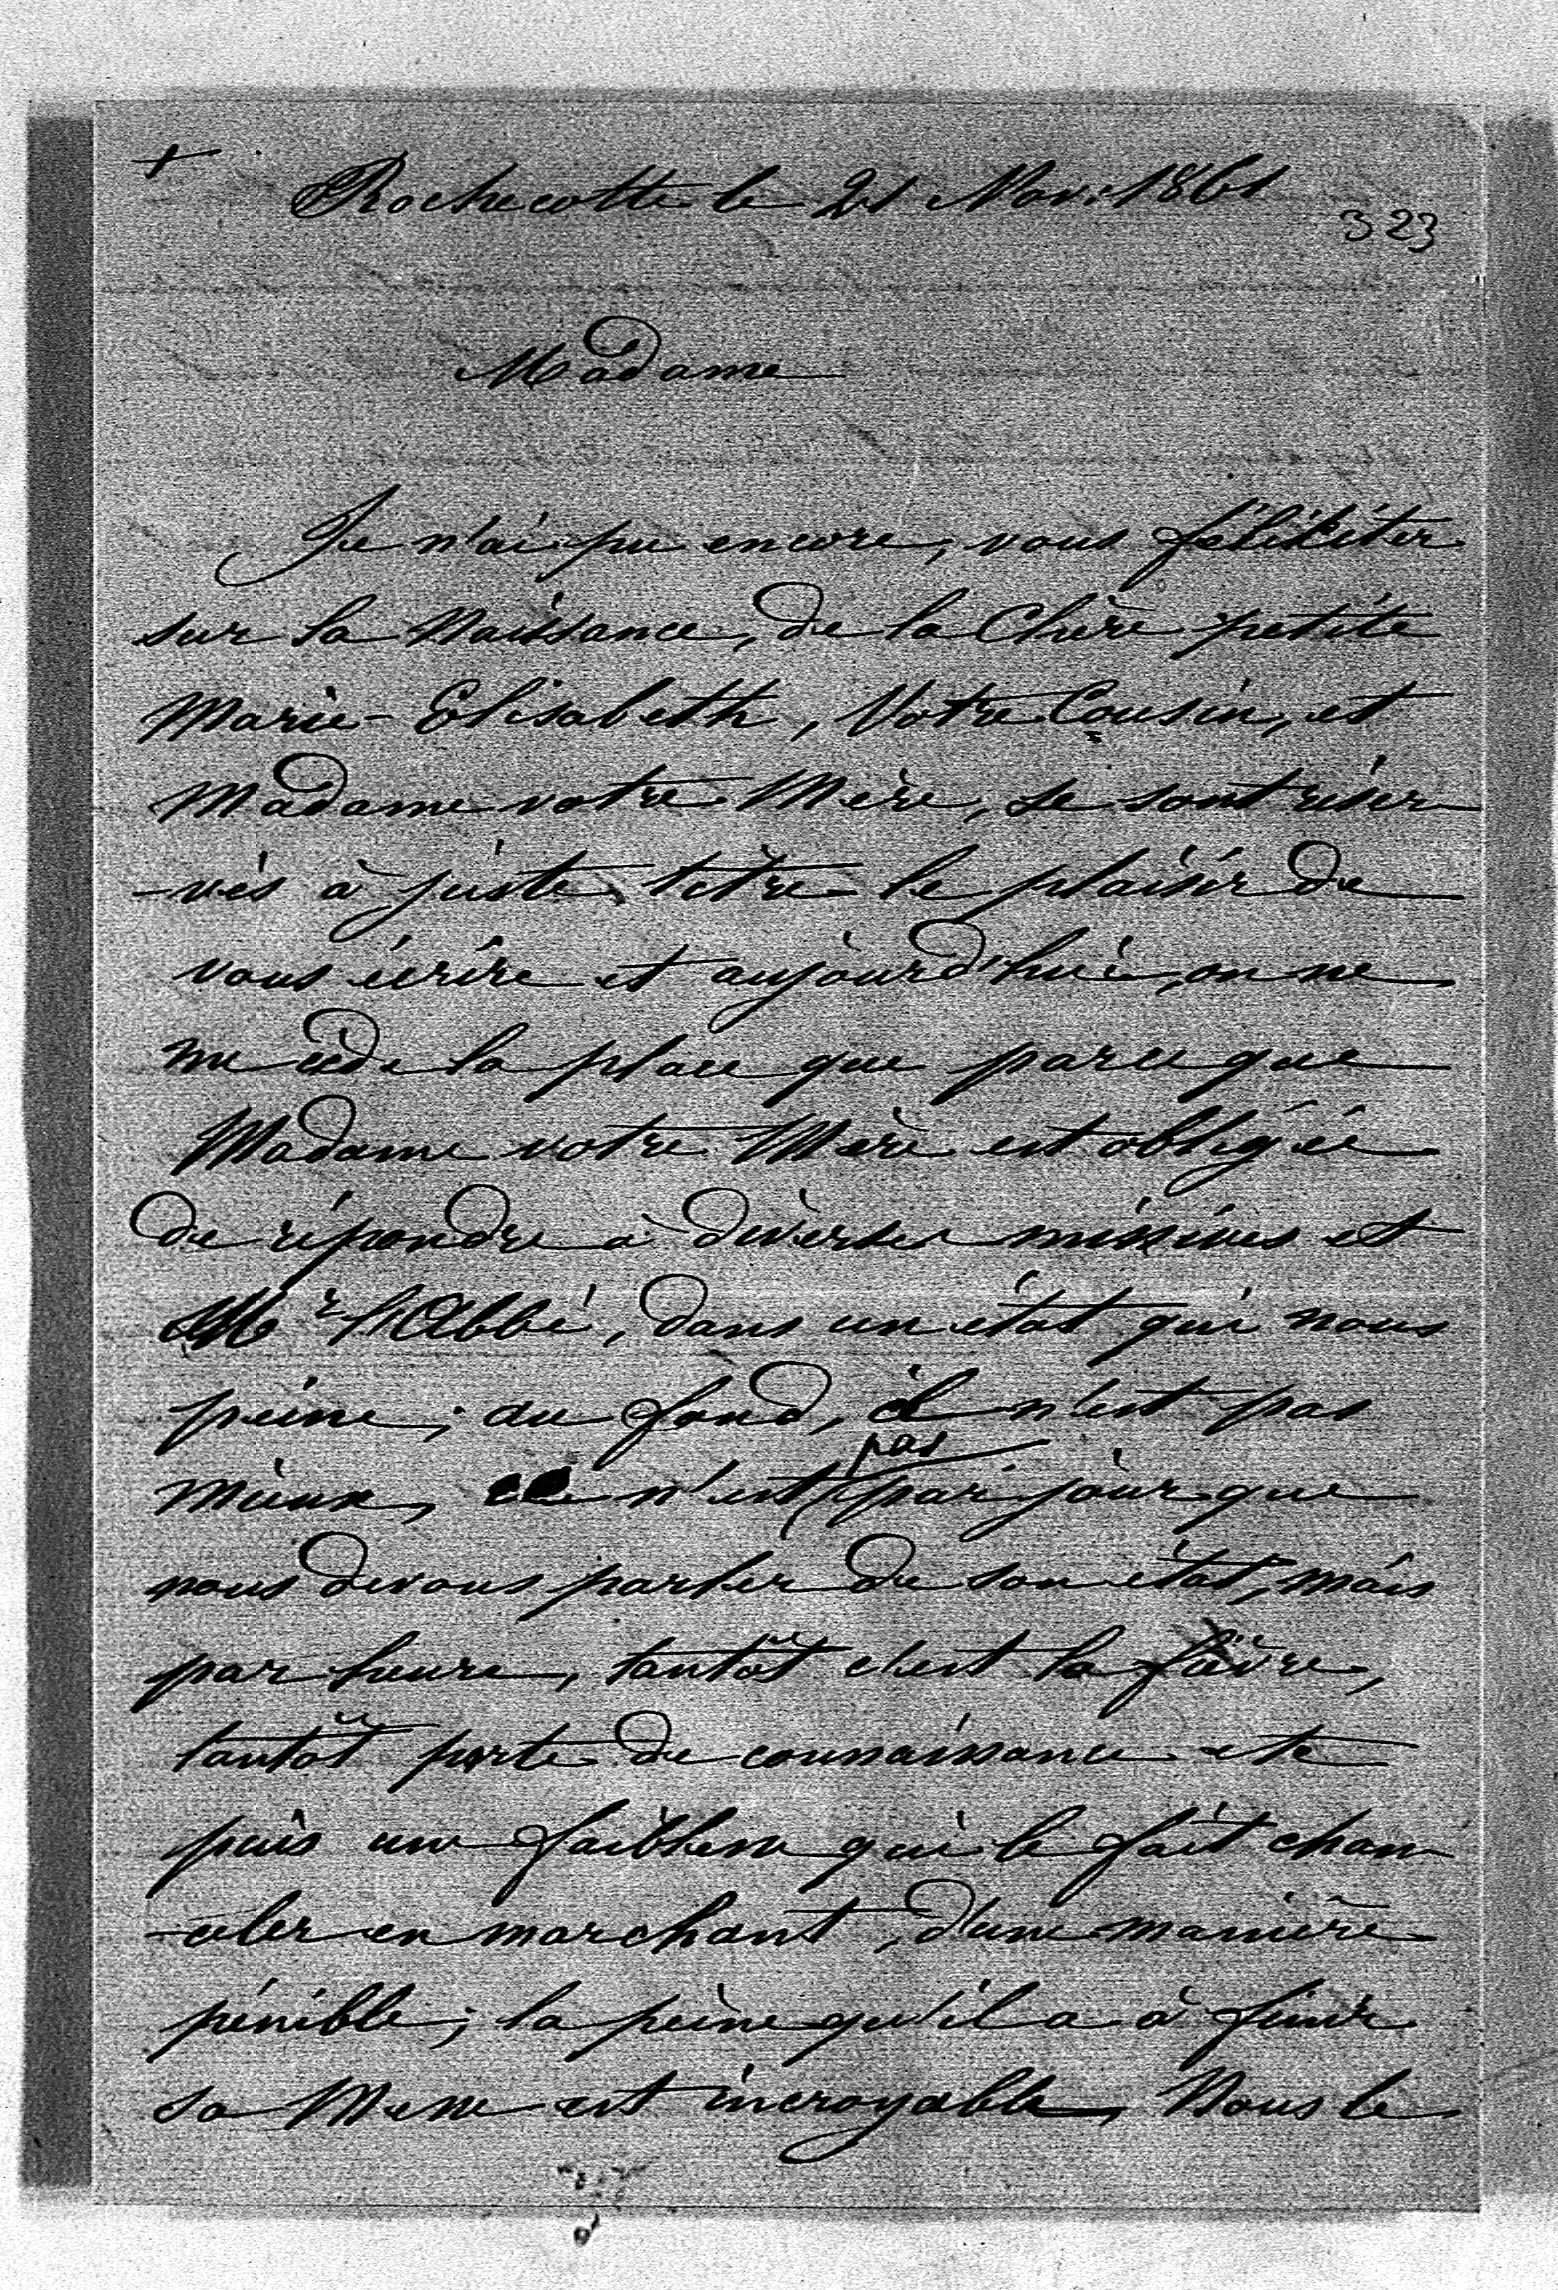 +
Rochecotte le 21 Nov. 1861
323
Madame
Je n'ai pu encore, vous féliciter
sur la Naissance, de la Chère petite
Marie-Elisabeth, Votre Cousin, et
Madame votre Mère, se sont réser-
-vés à juste titre le plaisir de
vous écrire et aujourd'hui, on ne
me cède la place que parce que
Madame votre Mère est obligée
de répondre à diverses missives et
Mr l'Abbé, dans un état qui nous
peine; au fond, il n'est pas
pas
mieux, ce n'est par jour que
nous devons parler de son état, mais
par heure, tantôt c'est la fièvre,
tantôt perte de connaissance etc
puis une faiblesse qui le fait chan-
-celer en marchant, d'une manière
pénible; la peine qu'il a à finir
sa Messe est incroyable, Nous le